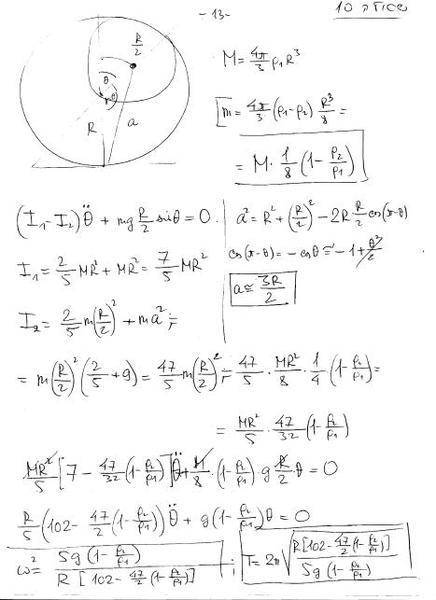 - 13 -
R/2
θ
θ
R
a
M = 4π/3 ρ₁R³
m = 4π/3 (ρ₁-ρ₂) R³/8 =
= M · 1/8 (1 - ρ₂/ρ₁)
(I₁-I₂)θ̈ + mg R/2 sinθ = 0.
a² = R² + (R/2)² - 2R R/2 cos(π-θ)
I₁ = 2/5 MR² + MR² = 7/5 MR²
cos(π-θ) = -cosθ ≅ -1 + θ²/2
a ≅ 3R/2
I₂ = 2/5 m(R/2)² + ma² =
= m(R/2)² (2/5 + 9) = 47/5 m(R/2)² = 47/5 · MR²/8 · 1/4 (1-ρ₂/ρ₁) =
= MR²/5 · 47/32 (1-ρ₂/ρ₁)
MR²/5 [7 - 47/32 (1-ρ₂/ρ₁)] θ̈ + M/8 · (1-ρ₂/ρ₁) g R/2 θ = 0
R/5 (102 - 47/2 (1-ρ₂/ρ₁)) θ̈ + g(1-ρ₂/ρ₁)θ = 0
ω² = 5g (1-ρ₂/ρ₁) / R [102 - 47/2 (1-ρ₂/ρ₁)] ; T = 2π √(R[102 - 47/2 (1-ρ₂/ρ₁)] / 5g (1-ρ₂/ρ₁))